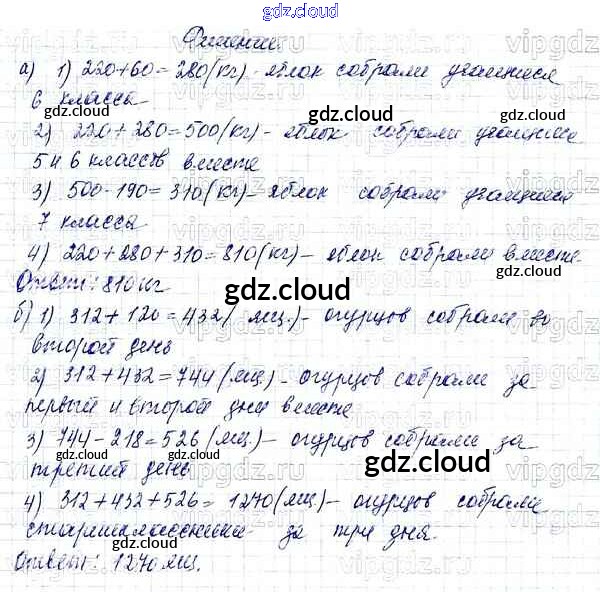 gdz.cloud
gdz.cloud
Решение
а) 1) 220+60=280(кг) - яблок собрали учащиеся
6 класса
gdz.cloud gdz.cloud
2) 220+280=500(кг)- яблок собрали учащиеся
5 и 6 классов вместе
3) 500-190=310(кг)- яблок собрали учащиеся
7 класса
4) 220+280+310=810(кг)- яблок собрали вместе.
Ответ: 810 кг
gdz.cloud
б) 1) 312+120=432(ящ.)- огурцов собрали во
второй день
gdz.cloud
2) 312+432=744(ящ)- огурцов собрали за
первый и второй дни вместе
3) 744-218=526(ящ)- огурцов собрали за
третий день
gdz.cloud gdz.cloud
4) 312+432+526=1270(ящ)- огурцов собрали
старшеклассники за три дня.
Ответ: 1270 ящ.
gdz.cloud